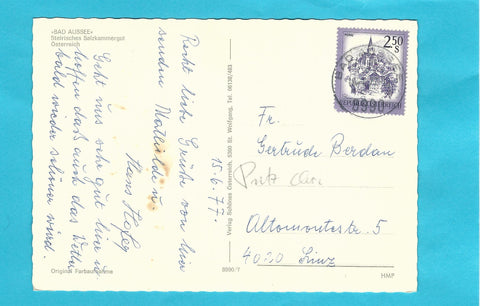 «BAD AUSSEE»
Steirisches Salzkammergut
Österreich
Recht liebe Grüße von
senden
15.6.77.
Geht uns sehr gut
hoffen daß auch das Wetter
bald wieder schöner wird.
Original Farbaufnahme
8990/7
Verlag Schönes Österreich, 5360 St. Wolfgang, Tel. 06138/483
2.50
S
REPUBLIK ÖSTERREICH
BAD
8990
Fr.
Gertrude Berdan
Altomontestr. 5
4020 Linz
HMP